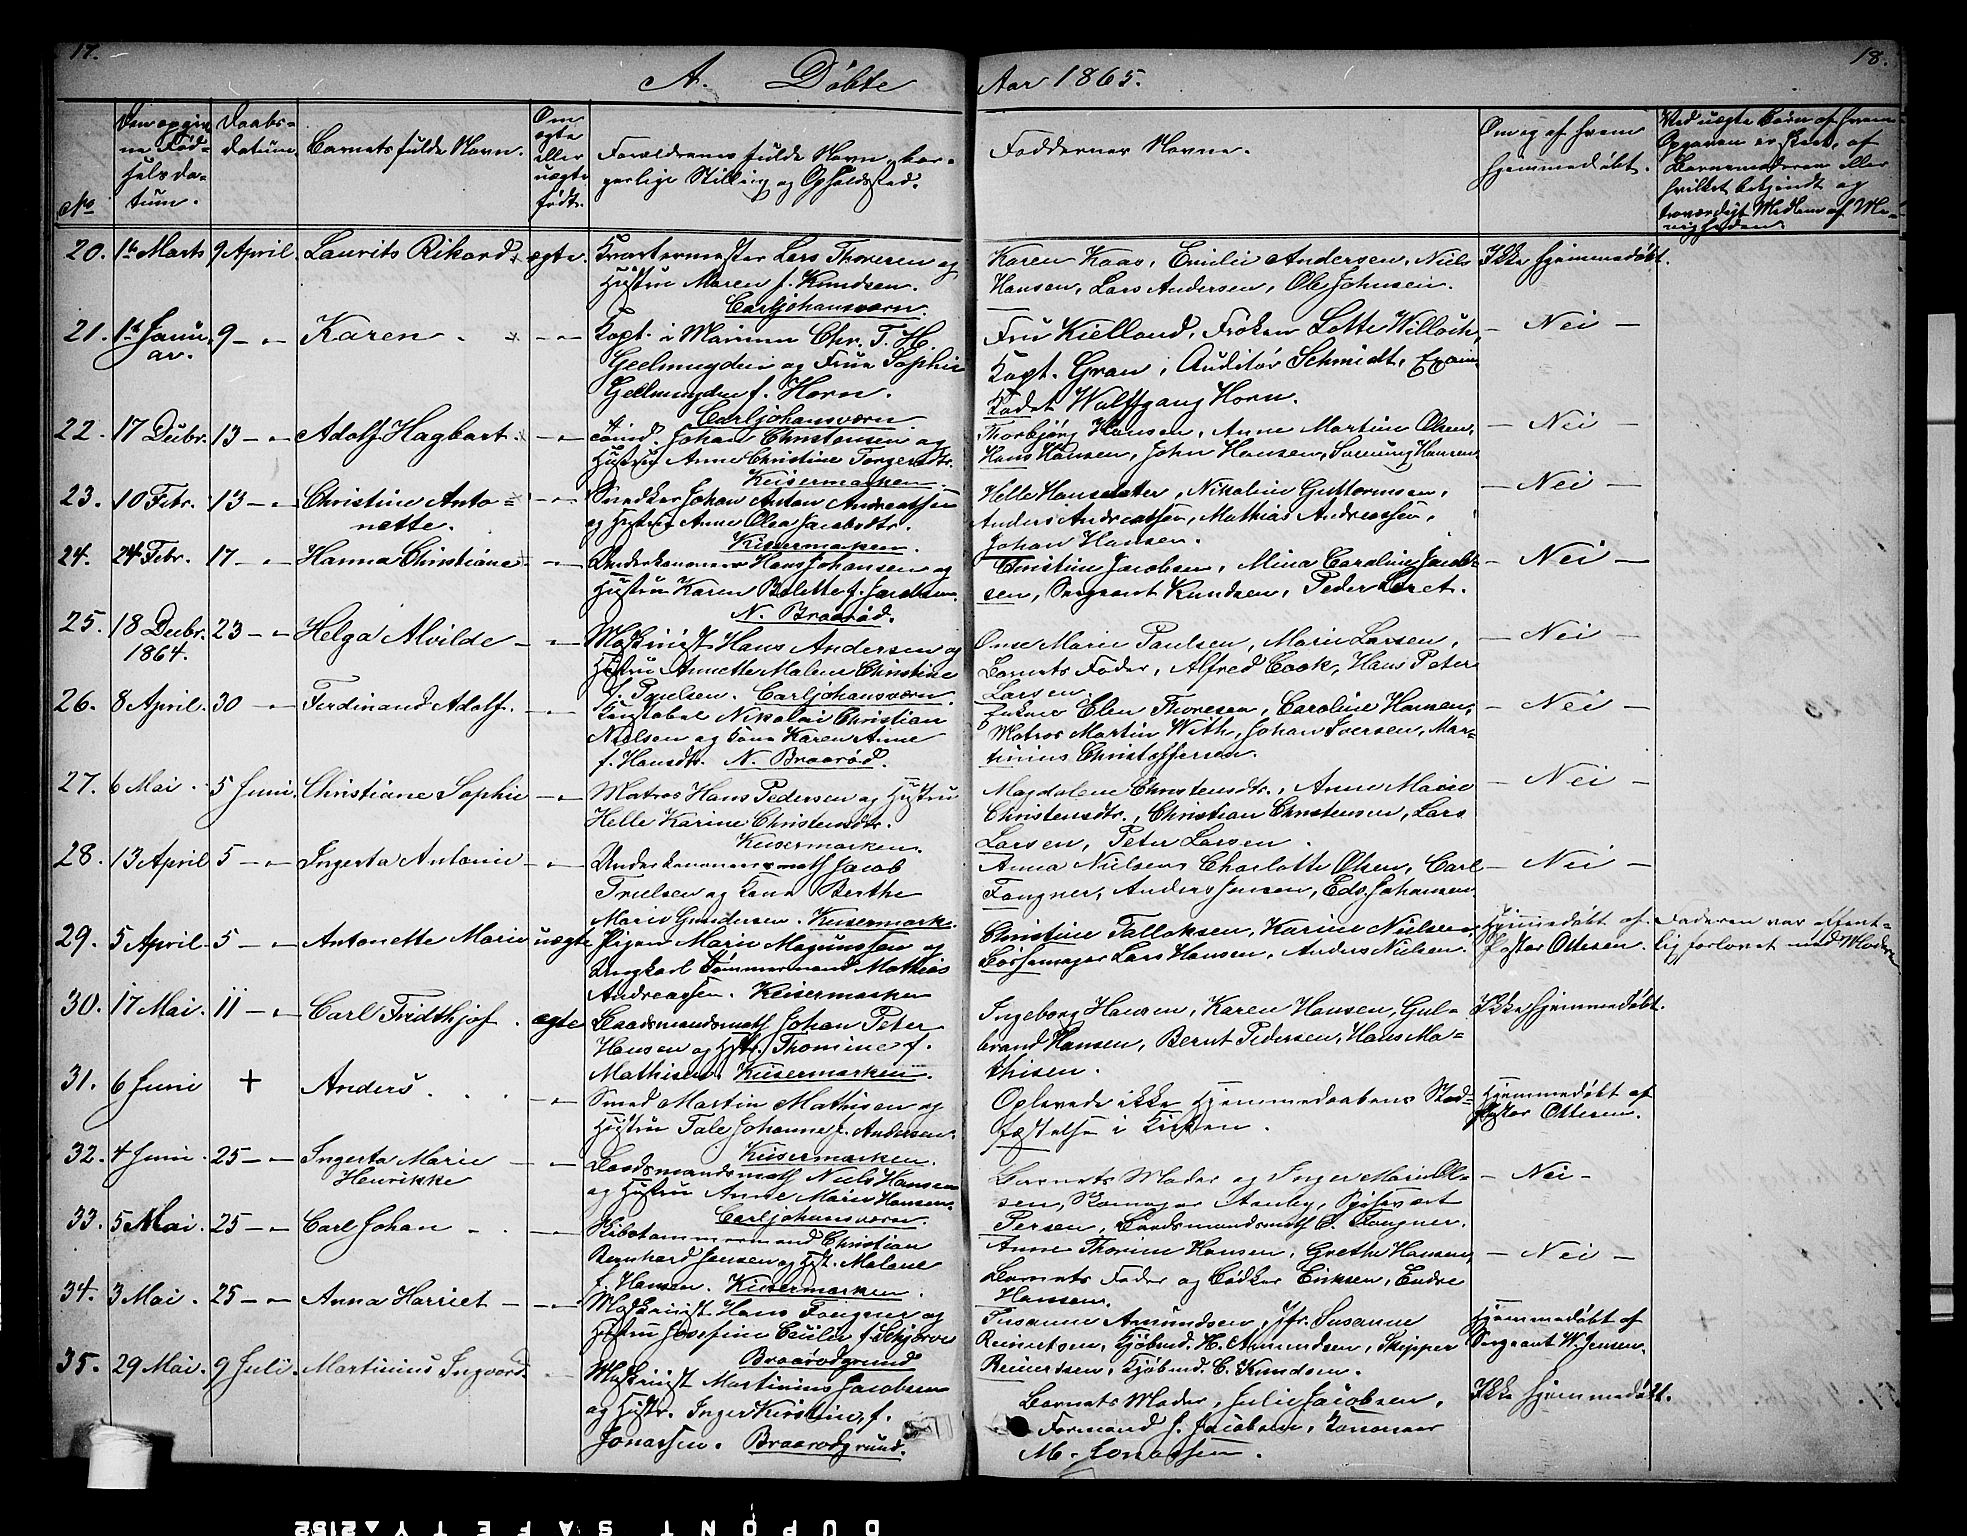 17.
18.
A. Döbte
Aar 1865.
No
Den opgiv
ne Föd-
selsda-
tum.
Daabs-
datum.
Barnets fulde Navn.
Om
ægte
eller
uægte
födt.
Forældrenes fulde Navn, bor-
gerlige Stilling og Opholdssted.
Faddernes Navne.
Om og af hvem
hjemmedöbt.
Ved uægte Börn af hvem
Opgaven er skeet, af
Barnemoderen eller
hvilket bekjendt og
troværdigt Medlem af Me-
nigheden.
20. 1te Marts 9 April. Laurits Rikard ægte. Kvartermester Lars Thoresen og
Hustru Maren f. Knudsen.
Carljohansværn.
Karen Kaas, Emilie Andersen, Niels
Hansen, Lars Andersen, Ole Johnsen.
Ikke hjemmedöbt.
21. 1te Janu
ar. 9 – „ Karen. – „ Capt. i Marinen Chr. T. H.
Geelmuyden og Frue Sophie
Geelmuyden f. Horn.
Carljohansværn.
Fru Kielland, Fröken Lotte Willoch,
Capt. Gran, Auditör Schmidt, Exam.
Kadet Wulffgang Horn.
– Nei –
22. 17 Decbr. 13 – „ Adolf Hagbart – „
Johan Christensen og
Hustru Anne Christine Torgersdtr.
Keisermarken.
Thorbjörg Hansen, Anne Martine Olsen,
Hans Hansen, John Hansen, Hansen
– Nei –
23. 10 Febr. 13 – „ Christine Anto-
nette. – „ Snedker Johan Anton Andreassen
og Hustru Anne Olea Jacobsdtr.
Keisermarken.
Helle Hansdatter, Nikoline Guttormsen,
Anders Andreassen, Mathias Andreassen,
Johan Hansen.
– Nei –
24. 24 Febr. 17 – „ Hanna Christiane – „ Underkanoneer Hans Johansen og
Hustru Karen Bolette f. Jacobsen.
N. Braaröd.
Christine Jacobsen, Mina Caroline Jacob-
sen, Sergeant Knudsen, Peder
– Nei –
25. 18 Decbr.
1864. 23 – „ Helga Alvilde – „ Maskinist Hans Andersen og
Hustru Annette Malene Christine
f. Paulsen. Carljohansværn.
Marie Paulsen, Marie Larsen,
Barnets Fader, Alfred Cook, Hans Peter
Larsen.
– Nei –
26. 8 April. 30 – „ Ferdinand Adolf. – „ Konstabel Nikolai Christian
Nielsen og Kone Karen Anne
f. Hansdtr. N. Braaröd.
Enkene Elen Thoresen, Caroline Hansen,
Matros Martin With, Johan Iversen, Mar-
tinius Christoffersen.
– Nei –
27. 6 Mai. 5 Juni. Christiane Sophie – „ Matros Hans Pedersen og Hustru
Helle Karine Christensdtr.
Keisermarken.
Magdalene Christensdtr., Anne Marie
Christensdtr., Christian Christensen, Lars
Larsen, Peter Larsen.
– Nei –
28. 13 April 5 – „ Ingerta Antonie – „ Underkanoneersmath Jacob
Truelsen og Kone Berthe
Marie Gundersen. Keisermark.
Anna Nielsen, Charlotte Olsen, Carl
Fougner, Anders Jensen, Edv. Johansen
– Nei –
29. 5 April. 5 – „ Antonette Marie uægte Pigen Marie Magnussen og
Ungkarl Tömmermand Mathias
Andreassen. Keisermarken
Christine Tallaksen, Karine Nielsen,
Börsemager Lars Hansen, Anders Nielsen.
Hjemmedöbt af
Pastor Ottesen.
Faderen var offent-
lig forlovet med Moderen
30. 17 Mai. 11 – „ Carl Fridthjof. ægte Baadsmandsmath Johan Peter
Hansen og Hstr. Thomine f.
Mathisen. Keisermarken.
Ingeborg Hansen, Karen Hansen, Gul-
brand Hansen, Bernt Pedersen, Hans Ma-
thisen.
Ikke hjemmedöbt.
31. 6 Juni + Anders. – „ Smed Martin Mathisen og
Hustru Tale Johanne f. Andersen.
Keisermarken.
Oplevede ikke Hjemmedaabens Stad-
fæstelse i Kirken.
Hjemmedöbt af
Pastor Ottesen.
32. 4 Juni. 25 – „ Ingerta Marie
Henrikke – „ Baadsmandsmath Niels Hansen
og Hustru Anne Marie Hansen.
Carljohansværn.
Barnets Moder og Inger Marie Ol-
sen, Aanby,
Persen, Baadsmandsmath C. Fougner.
– Nei –
33. 5 Mai. 25 – „ Carl Johan – „ Skibstømmermand Christian
Bernhard Jensen og Hst. Malene
f. Hansen. Keisermarken.
Anne Thorine Hansen, Grethe Hansen,
Barnets Fader og Bödker Eriksen, Endre
Hansen.
– Nei –
34. 3 Mai. 25 – „ Anna Harriet – „ Maskinist Hans Fougner og
Hustru Josefine Cecilie f. Schjerve
Braarödgrund
Susanne Amundsen, Jfr. Susanne
Reinertsen, Kjöbmd. H. Amundsen, Skipper
Reinertsen, Kjöbmd. C. Knudsen.
Hjemmedöbt af
Sergeant W. Jensen.
35. 29 Mai. 9 Juli. Martinius Ingvard. – „ Maskinist Martinius Jacobsen
og Hustr. Inger Kirstine, f.
Jonassen. Braarödgrund.
Barnets Moder, Julie Jacobsen,
Formand J. Jacobsen, Kanoneer
M. Jonassen.
Ikke hjemmedöbt.
DUPONT SAFETY 2152